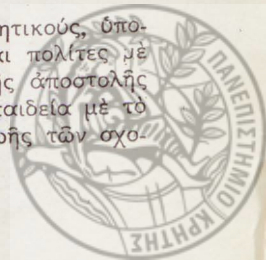 ητικούς, ὑπο-
ι πολίτες μὲ
ῆς ἀποστολῆς
αιδεία μὲ τὸ
ρῆς τῶν σχο-
ΠΑΝΕΠΙΣΤΗΜΙΟ ΚΡΗΤΗΣ